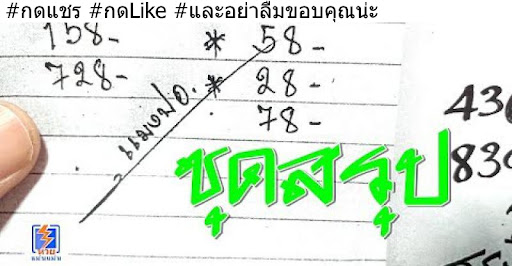 #กดแชร #กดLike #และอย่าลืมขอบคุณน่ะ
158- * 58-
728- * 28-
78-
แมงปอ.
ชุดสรุป